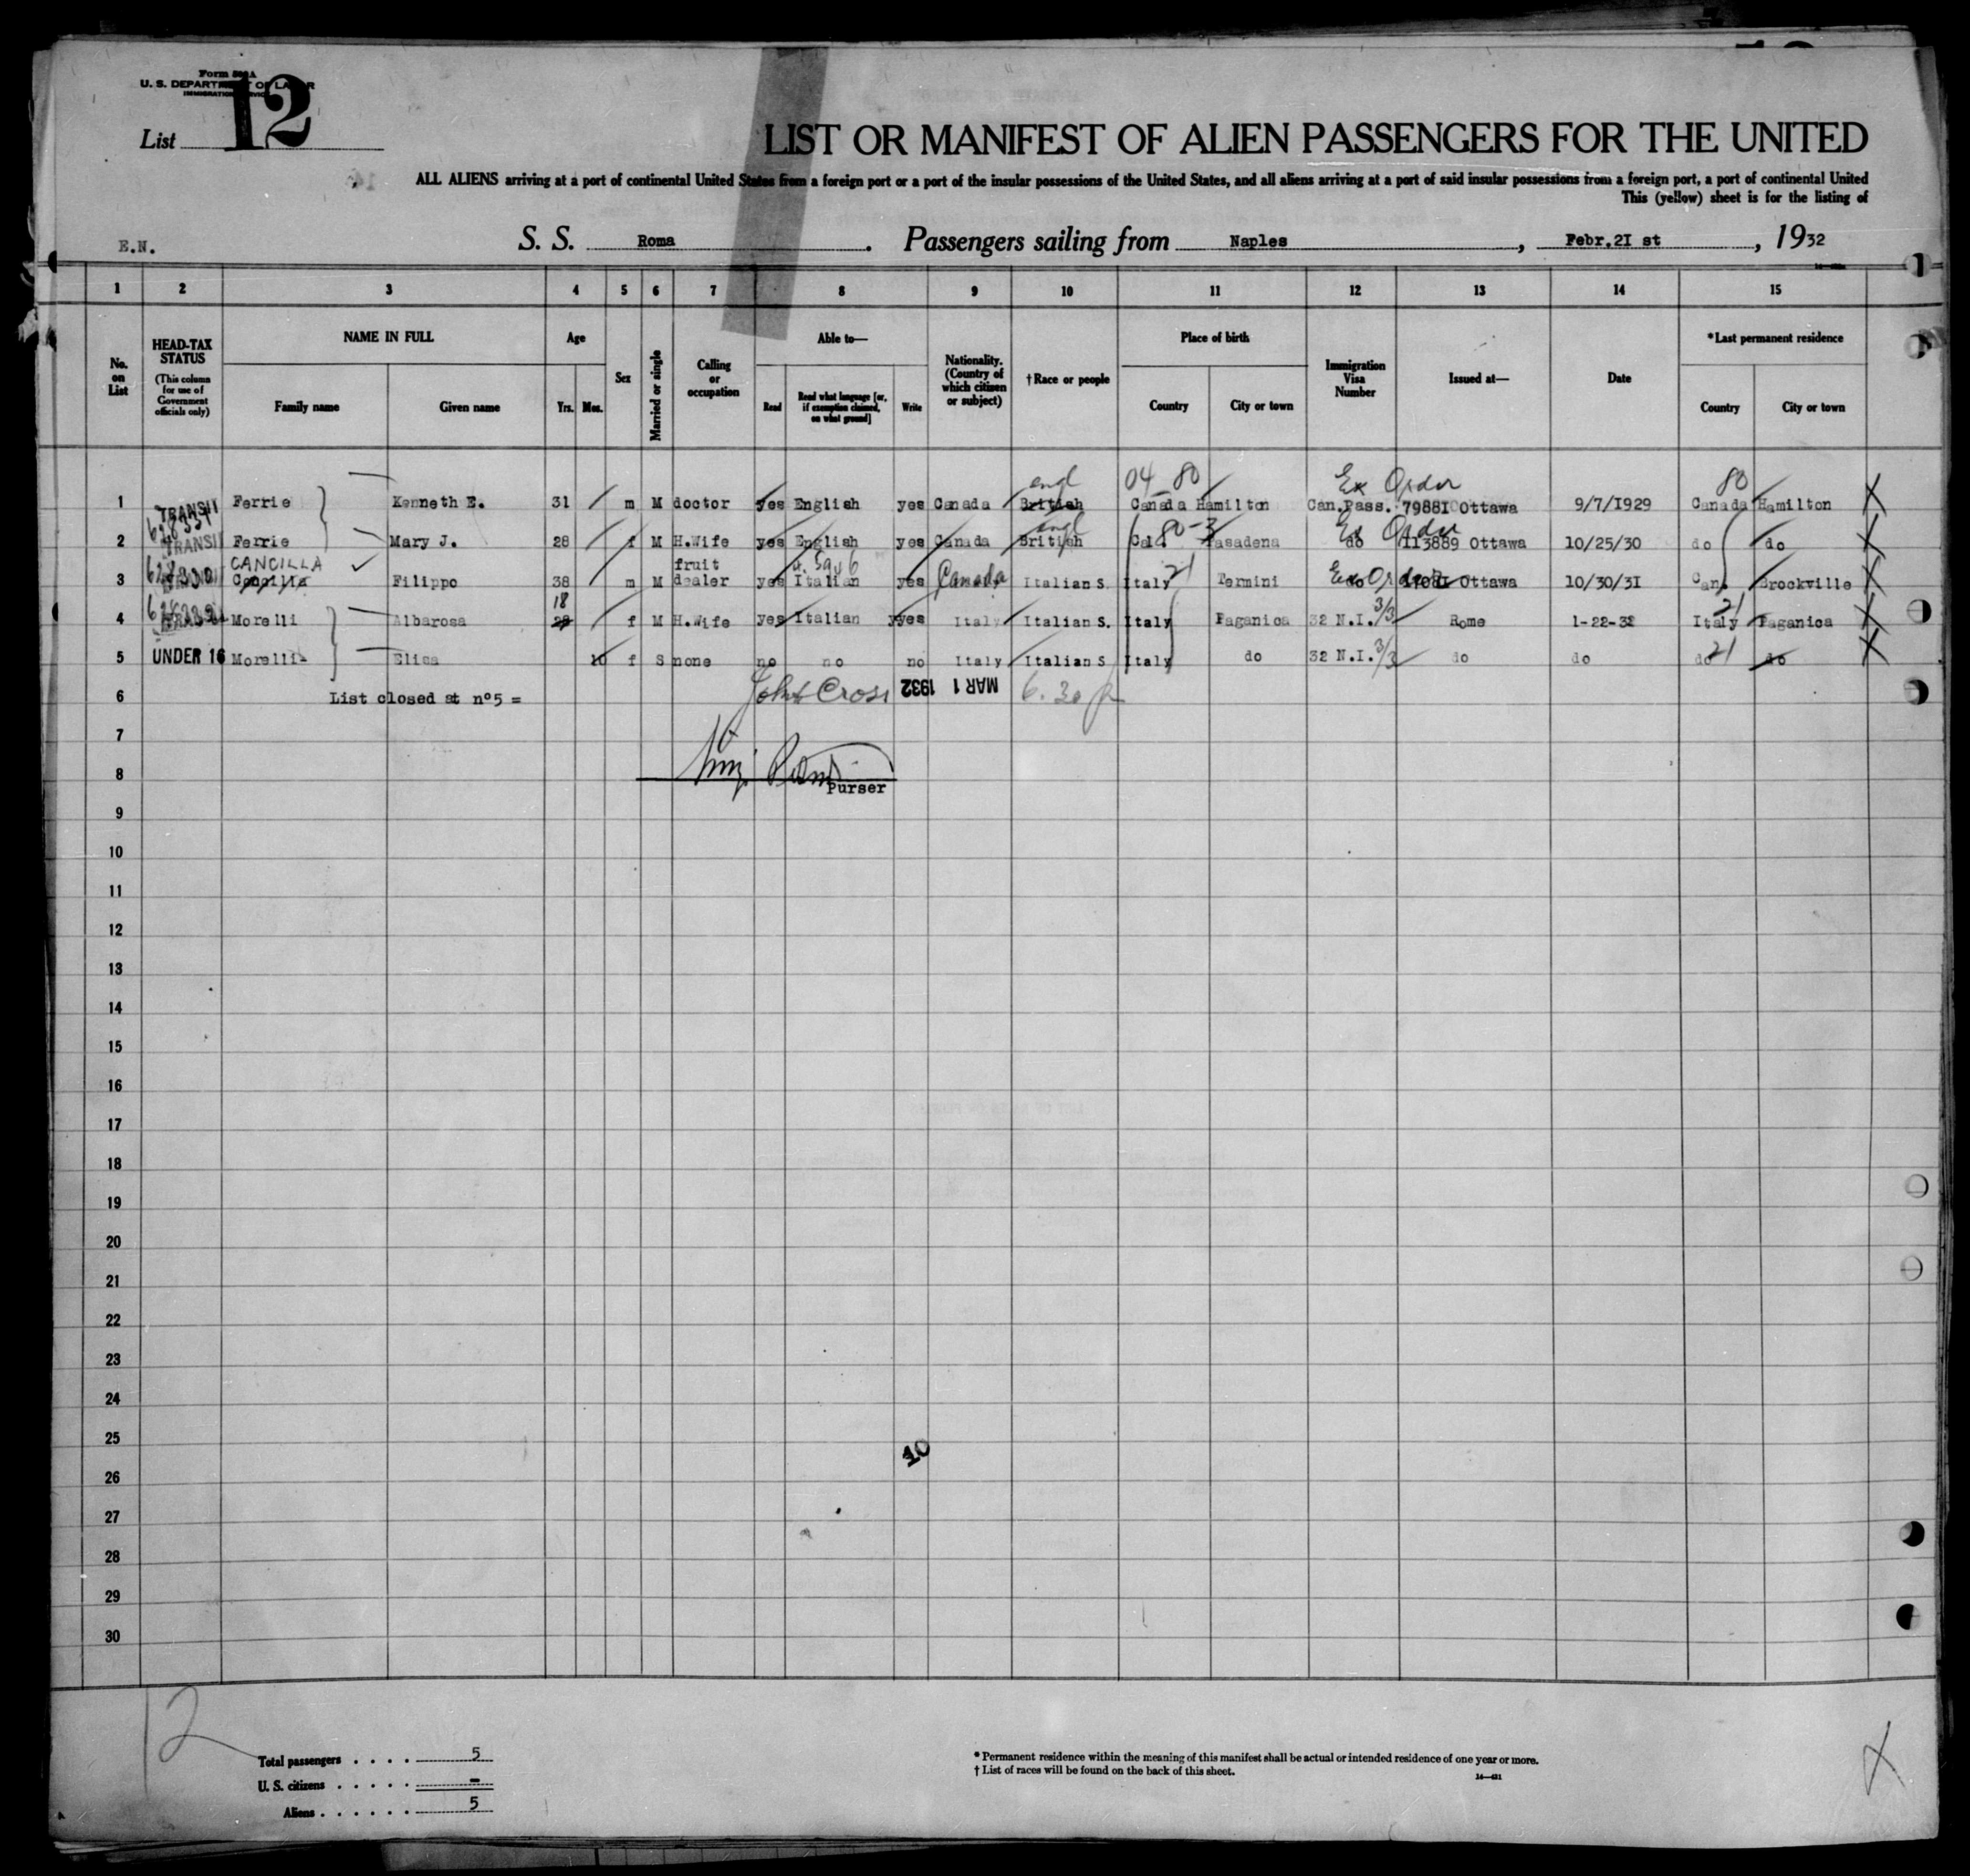 Form 500A
U. S. DEPARTMENT OF LABOR
IMMIGRATION SERVICE
List 12
LIST OR MANIFEST OF ALIEN PASSENGERS FOR THE UNITED
ALL ALIENS arriving at a port of continental United States from a foreign port or a port of the insular possessions of the United States, and all aliens arriving at a port of said insular possessions from a foreign port, a port of continental United
This (yellow) sheet is for the listing of
E.N. S. S. Roma. Passengers sailing from Naples, Febr.2I st, 1932
1 2 3 4 5 6 7 8 9 10 11 12 13 14 15
No. on List
HEAD-TAX STATUS
(This column for use of Government officials only)
NAME IN FULL
Family name Given name
Age
Yrs. Mos.
Sex
Married or single
Calling or occupation
Able to—
Read Read what language [or, if exemption claimed, on what ground] Write
Nationality. (Country of which citizen or subject)
†Race or people
Place of birth
Country City or town
Immigration Visa Number
Issued at—
Date
*Last permanent residence
Country City or town
engl 04-80 Ex Order 80
1 TRANSIT Ferrie Kenneth E. 31 m M doctor yes English yes Canada British Canada Hamilton Can.Pass. 7988I Ottawa 9/7/I929 Canada Hamilton X
engl 80-3 Ex Order
2 TRANSIT Ferrie Mary J. 28 f M H.Wife yes English yes Canada British Cal. Pasadena do II3889 Ottawa 10/25/30 do do X
CANCILLA fruit 21
3 Filippo 38 m M dealer yes Italian yes Canada Italian S. Italy Termini Ex Order Ottawa 10/30/31 Can. Brockville X
18 3/3 21
4 Morelli Albarosa 28 f M H.Wife yes Italian yes Italy Italian S. Italy Paganica 32 N.I. Rome 1-22-32 Italy Paganica X
3/3 21
5 UNDER 16 Morelli Elisa 10 f S none no no no Italy Italian S Italy do 32 N.I. do do do do X
6 List closed at nº5 = John Cross MAR 1 1932 6.30 p
7
8
Purser
9
10
11
12
13
14
15
16
17
18
19
20
21
22
23
24
25
10
26
27
28
29
30
12
Total passengers . . . . 5
U. S. citizens . . . . . -
Aliens . . . . . . 5
* Permanent residence within the meaning of this manifest shall be actual or intended residence of one year or more.
† List of races will be found on the back of this sheet.
14—421
X